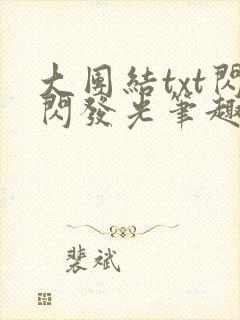 大团結txt閃
閃發光筆趣
裴斌